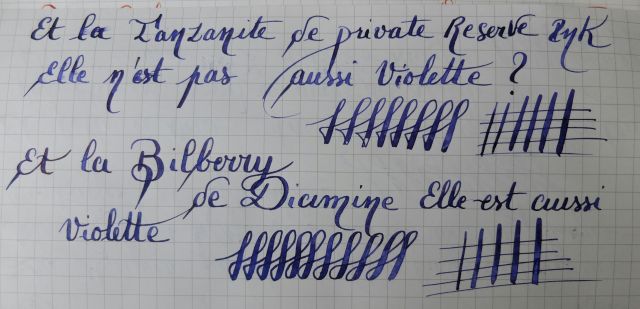 Et la Tanzanite de private Reserve Ink
Elle n'est pas aussi Violette ?
Et la Bilberry
de Diamine Elle est aussi
Violette